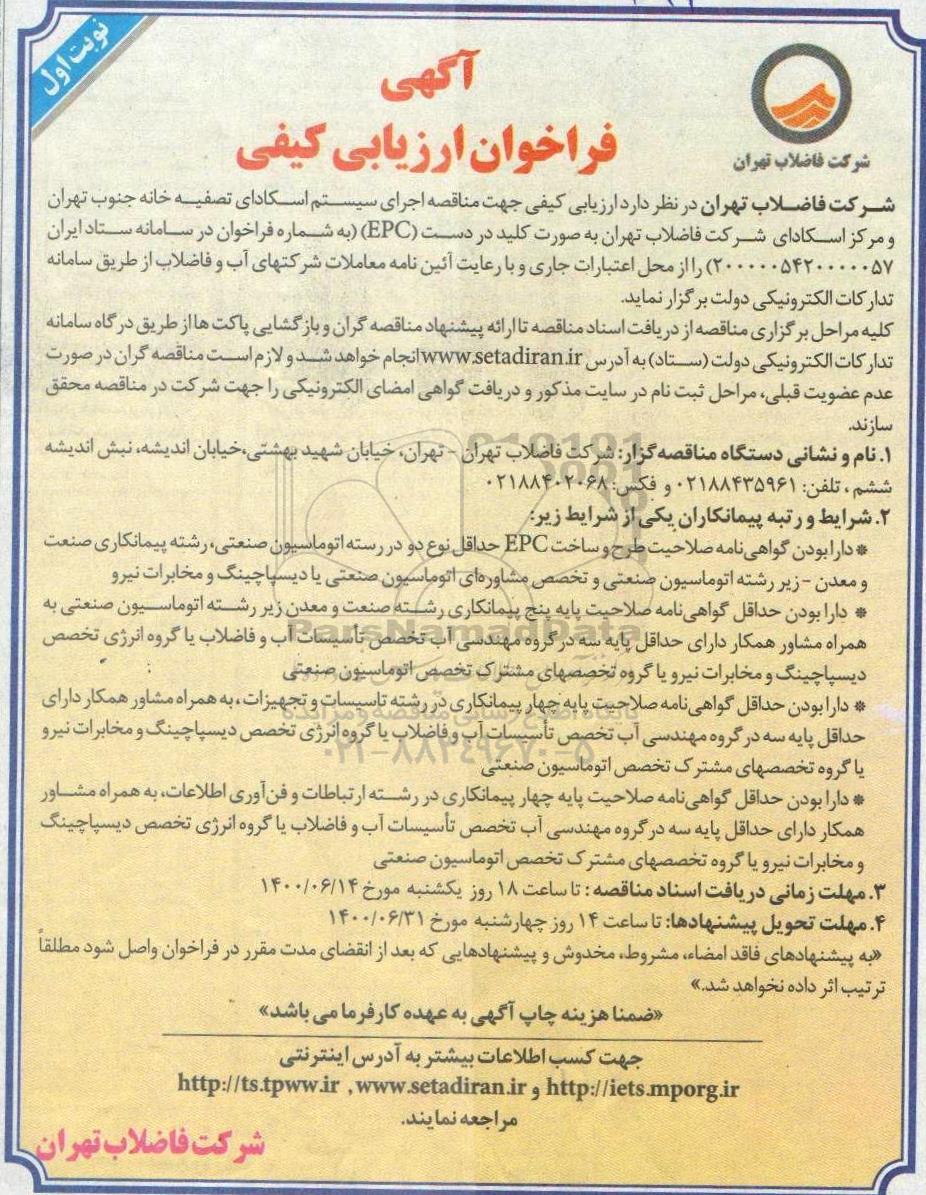 نوبت اول
آگهی
فراخوان ارزیابی کیفی
شرکت فاضلاب تهران
شرکت فاضلاب تهران در نظر دارد ارزیابی کیفی جهت مناقصه اجرای سیستم اسکادای تصفیه خانه جنوب تهران
و مرکز اسکادای شرکت فاضلاب تهران به صورت کلید در دست (EPC) (به شماره فراخوان در سامانه ستاد ایران
۲۰۰۰۰۰۵۴۲۰۰۰۰۰۵۷) را از محل اعتبارات جاری و با رعایت آئین نامه معاملات شرکتهای آب و فاضلاب از طریق سامانه
تدارکات الکترونیکی دولت برگزار نماید.
کلیه مراحل برگزاری مناقصه از دریافت اسناد مناقصه تا ارائه پیشنهاد مناقصه گران و بازگشایی پاکت ها از طریق درگاه سامانه
تدارکات الکترونیکی دولت (ستاد) به آدرس www.setadiran.ir انجام خواهد شد و لازم است مناقصه گران در صورت
عدم عضویت قبلی، مراحل ثبت نام در سایت مذکور و دریافت گواهی امضای الکترونیکی را جهت شرکت در مناقصه محقق
سازند.
۱. نام و نشانی دستگاه مناقصه گزار: شرکت فاضلاب تهران - تهران، خیابان شهید بهشتی،خیابان اندیشه، نبش اندیشه
ششم ، تلفن: ۰۲۱۸۸۴۳۵۹۶۱ و فکس: ۰۲۱۸۸۴۰۲۰۶۸
۲. شرایط و رتبه پیمانکاران یکی از شرایط زیر:
* دارا بودن گواهی‌نامه صلاحیت طرح و ساخت EPC حداقل نوع دو در رسته اتوماسیون صنعتی، رشته پیمانکاری صنعت
و معدن - زیر رشته اتوماسیون صنعتی و تخصص مشاوره‌ای اتوماسیون صنعتی یا دیسپاچینگ و مخابرات نیرو
* دارا بودن حداقل گواهی‌نامه صلاحیت پایه پنج پیمانکاری رشته صنعت و معدن زیر رشته اتوماسیون صنعتی به
همراه مشاور همکار دارای حداقل پایه سه در گروه مهندسی آب تخصص تأسیسات آب و فاضلاب یا گروه انرژی تخصص
دیسپاچینگ و مخابرات نیرو یا گروه تخصصهای مشترک تخصص اتوماسیون صنعتی
* دارا بودن حداقل گواهی‌نامه صلاحیت پایه چهار پیمانکاری در رشته تاسیسات و تجهیزات ، به همراه مشاور همکار دارای
حداقل پایه سه در گروه مهندسی آب تخصص تأسیسات آب و فاضلاب یا گروه انرژی تخصص دیسپاچینگ و مخابرات نیرو
یا گروه تخصصهای مشترک تخصص اتوماسیون صنعتی
* دارا بودن حداقل گواهی‌نامه صلاحیت پایه چهار پیمانکاری در رشته ارتباطات و فن‌آوری اطلاعات، به همراه مشاور
همکار دارای حداقل پایه سه در گروه مهندسی آب تخصص تأسیسات آب و فاضلاب یا گروه انرژی تخصص دیسپاچینگ
و مخابرات نیرو یا گروه تخصصهای مشترک تخصص اتوماسیون صنعتی
۳. مهلت زمانی دریافت اسناد مناقصه : تا ساعت ۱۸ روز یکشنبه مورخ ۱۴۰۰/۰۶/۱۴
۴. مهلت تحویل پیشنهادها: تا ساعت ۱۴ روز چهارشنبه مورخ ۱۴۰۰/۰۶/۳۱
«به پیشنهادهای فاقد امضاء، مشروط، مخدوش و پیشنهادهایی که بعد از انقضای مدت مقرر در فراخوان واصل شود مطلقاً
ترتیب اثر داده نخواهد شد.»
«ضمنا هزینه چاپ آگهی به عهده کارفرما می باشد»
جهت کسب اطلاعات بیشتر به آدرس اینترنتی
http://iets.mporg.ir و www.setadiran.ir , http://ts.tpww.ir
مراجعه نمایند.
شرکت فاضلاب تهران
ParsNamadData
۰۲۱-۸۸۳۴۹۶۷۰-۵